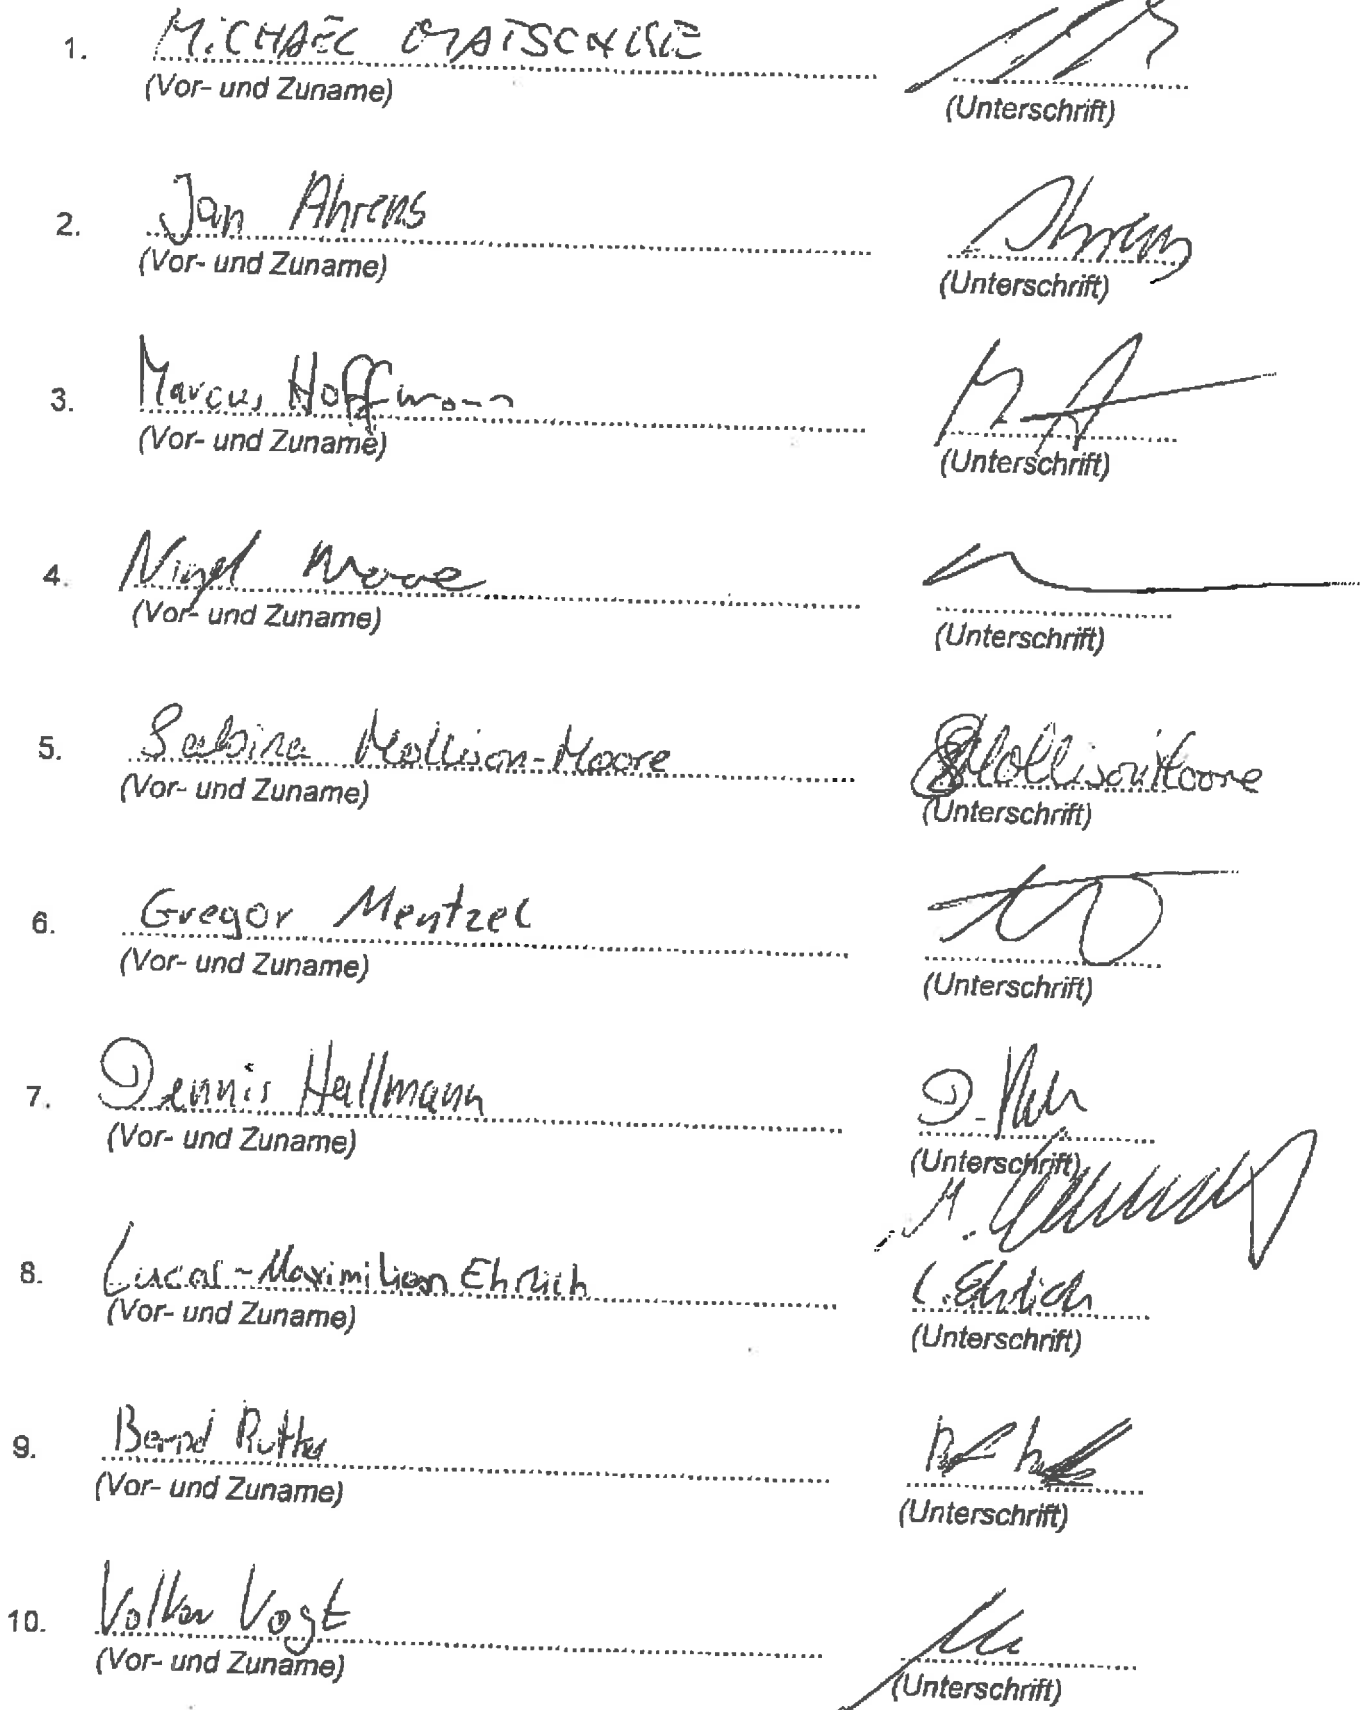 1. MiCHAEL MATSCHKE
(Vor- und Zuname) (Unterschrift)
2. Jan Ahrens Ahrens
(Vor- und Zuname) (Unterschrift)
3. Marcus Hoffmann
(Vor- und Zuname) (Unterschrift)
4. Nigel Moore
(Vor- und Zuname) (Unterschrift)
5. Sabine Mollison-Moore SMollisonMoore
(Vor- und Zuname) (Unterschrift)
6. Gregor Mentzel
(Vor- und Zuname) (Unterschrift)
7. Dennis Hallmann D.
(Vor- und Zuname) (Unterschrift)
8. Lucas-Maximilian Ehrlich L.Ehrlich
(Vor- und Zuname) (Unterschrift)
9. Bernd
(Vor- und Zuname) (Unterschrift)
10. Volker Vogt
(Vor- und Zuname) (Unterschrift)